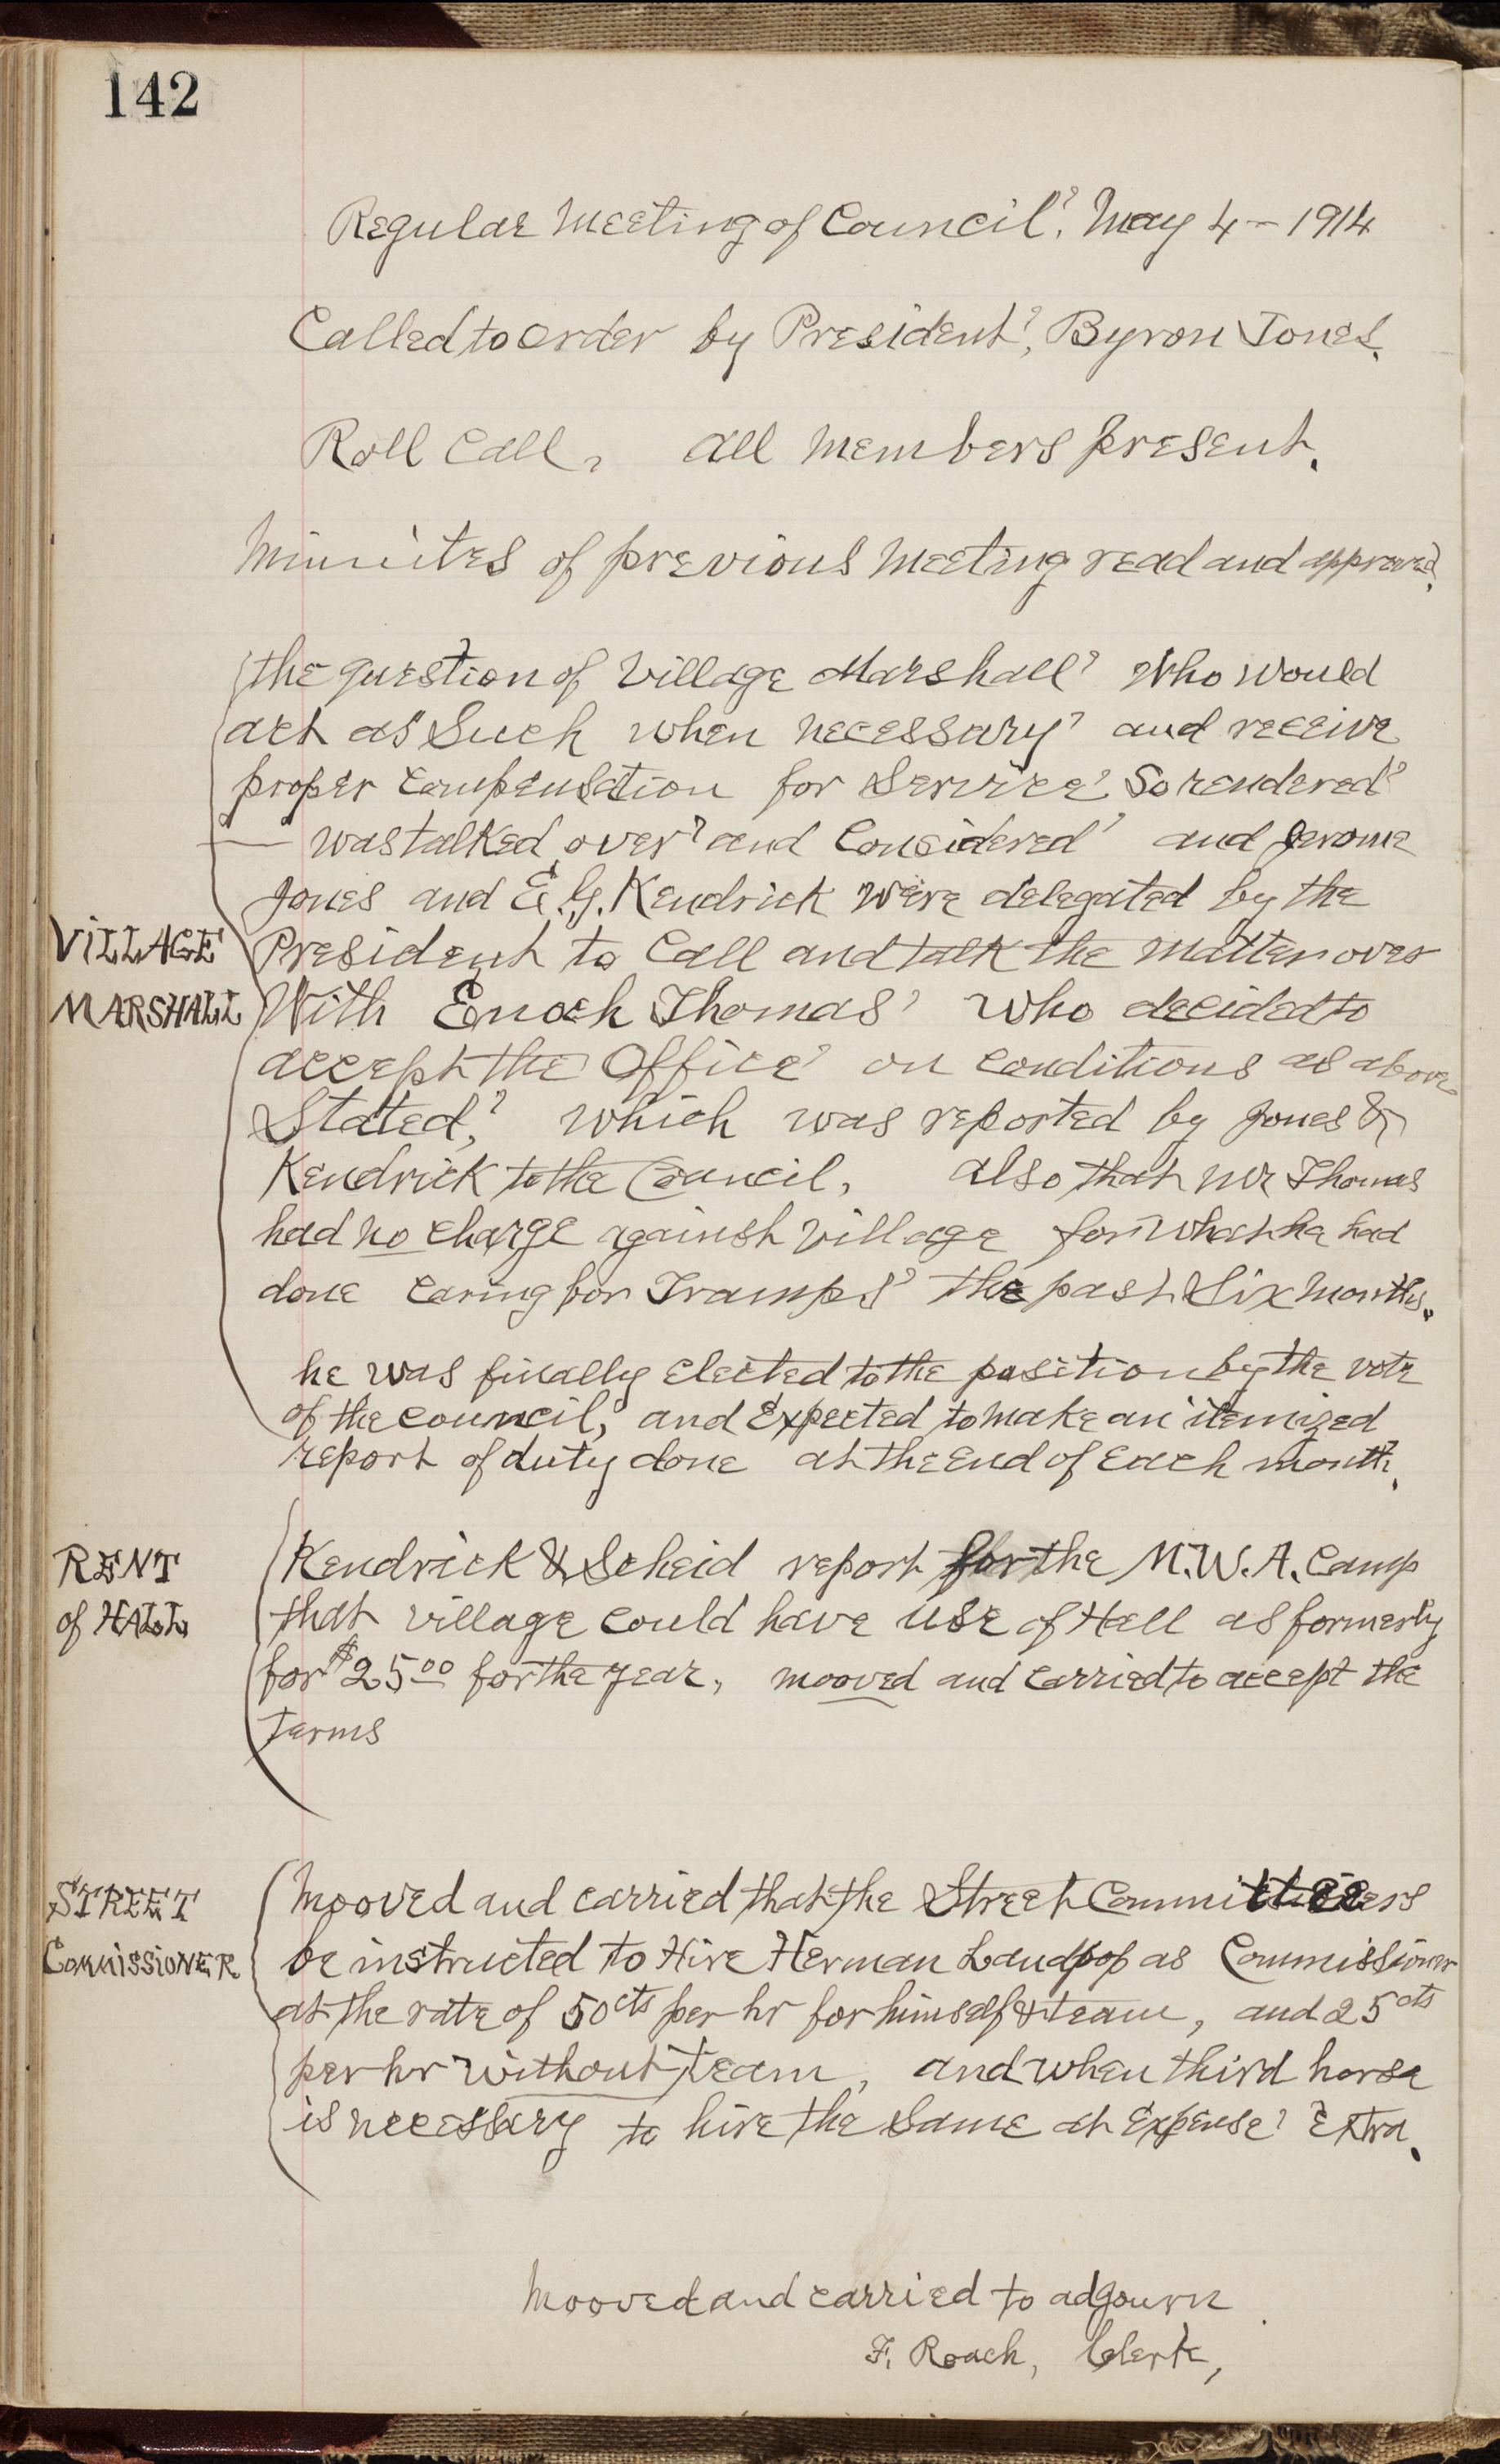 142
Regular Meeting of Council, May 4 - 1914
Called to order by President, Byron Jones.
Roll Call, all members present.
Minuites of previous meeting read and approved.
the question of Village Marshall, who would
act as such when necessary, and receive
proper compensation for service, so rendered,
— was talked over, and considered, and Jerome
Jones and E. G. Kendrick were delegated by the
VILLAGE President to call and talk the matter over
MARSHALL With Enoch Thomas, who decided to
accept the office, on conditions as above
Stated, which was reported by Jones &
Kendrick to the Council, also that Mr Thomas
had no charge against village for what he had
done caring for Tramps, the past six months.
he was finally elected to the position by the vote
of the council, and expected to make an itemized
report of duty done at the end of each month.
RENT Kendrick & Scheid report for the M.W.A. Camp
of HALL that village could have use of Hall as formerly
for $25 00 for the year, mooved and carried to accept the
terms
STREET Mooved and carried that the Street Committee
COMMISSIONER be instructed to Hire Herman Landpop as Commissioner
at the rate of 50 cts per hr for himself & team, and 25 cts
per hr without team, and when third horse
is necessary to hire the same at expense, extra.
Mooved and carried to adgourn
F. Roach, Clerk,